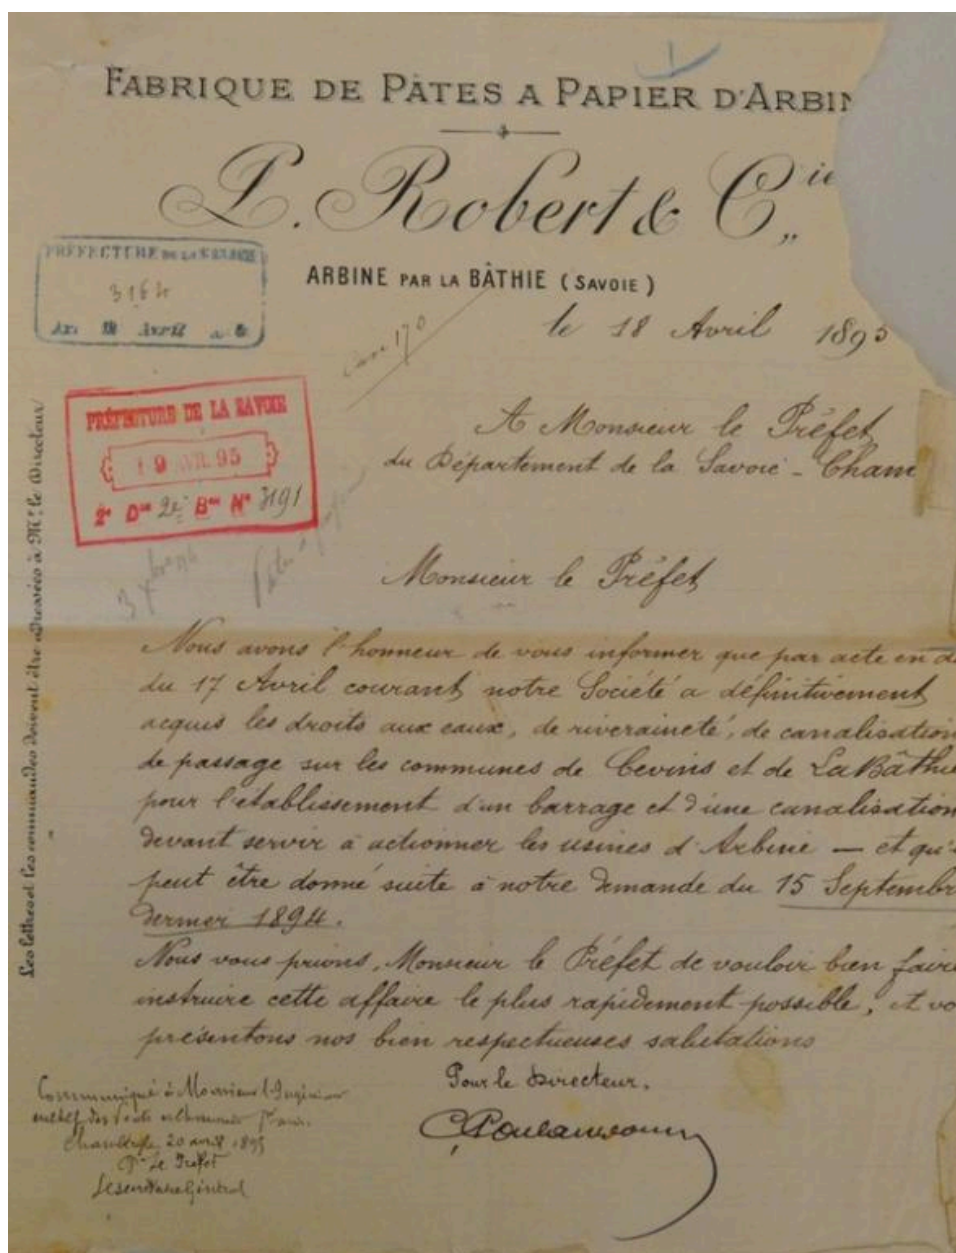 FABRIQUE DE PÂTES A PAPIER D'ARBIN
L. Robert & Cie
ARBINE PAR LA BÂTHIE (SAVOIE)
PRÉFECTURE DE LA SAVOIE
3164
Avril
Case 170
le 18 Avril 1895
PRÉFECTURE DE LA SAVOIE
19 AVR. 95
2e Don 2e Bau No 3191
A Monsieur le Préfet
du Département de la Savoie - Cham
Monsieur le Préfet
Nous avons l'honneur de vous informer que par acte en d
du 17 Avril courant, notre Société a définitivement
acquis les droits aux eaux, de riveraineté, de canalisation
de passage sur les communes de Cevins et de La Bâthie
pour l'établissement d'un barrage et d'une canalisation
devant servir à actionner les usines d'Arbine — et qu'
peut être donné suite à notre demande du 15 Septembre
dernier 1894.
Nous vous prions, Monsieur le Préfet de vouloir bien faire
instruire cette affaire le plus rapidement possible, et vo
présentons nos bien respectueuses salutations
Pour le Directeur.
Communiqué à Monsieur l'Ingénieur
en chef des Ponts et Chaussées
Chambéry, 20 avril 1895
Pr Le Préfet
Le secrétaire Général
Les lettres et les commandes doivent être adressées à Mr. le Directeur